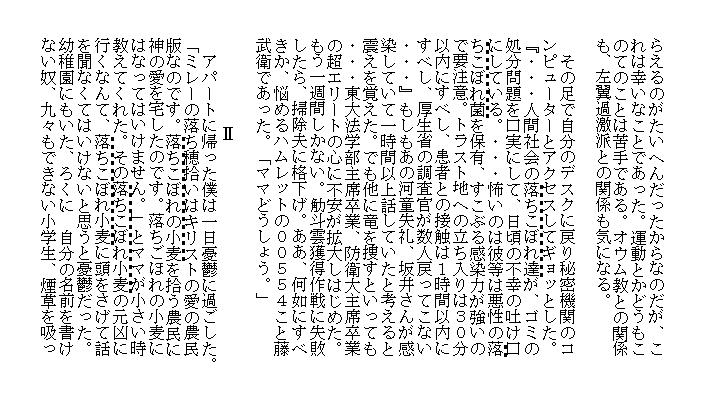 らえるのがたいへんだったからなのだが、こ
れは幸いなことであった。運動とかどうもこ
のてのことは苦手である。オウム教との関係
も、左翼過激派との関係も気になる。
その足で自分のデスクに戻り秘密機関のコ
ンピューターとアクセスしてギョッとした。
『・・・人間社会の落ちこぼれ達が、ゴミの
処分問題を口実にして、日頃の不幸の吐け口
にしている。・・・怖いのは彼等は悪性の落
ちこぼれ菌を保有、すこぶる感染力が強いの
で要注意。トラスト地への立ち入りは３０分
以内にすべし、患者との接触は１時間以内に
すべし、厚生省の調査官が数人戻ってこない
・・・』もしもあの河童失礼、坂井さんが感
染していて一時間以上話していたと考えると
震えを覚えた。でも他に竜を捜すといっても
・・・東大法学部主席卒業、防衛大主席卒業
の超エリートの心に不安が拡大しはじめた。
もう一週間しかない。觔斗雲獲得作戦に失敗
したら、掃除夫に格下げ。ああ、何如にすべ
きか、悩めるハムレットの００５５４こと藤
武衛であった。「ママどうしょう。」
Ⅱ
アパートに帰った僕は一日憂鬱に過ごした。
「ミレーの落ち穂拾いはキリストの愛の農民
版なのです。落ちこぼれの小麦を拾う農民に
神の愛を宅したのです。落ちこぼれの小麦に
はなってはいけません。」とママが小さい時
教えてくれた。その落ちこぼれ小麦の元凶に
行くなんて、落ちこぼれ小麦に頭をさげて話
を聞なくてはいけないと思うと憂鬱だった。
幼稚園にもいた、ろくに　自分の名前を書け
ない奴、九々もできない小学生、煙草を吸っ